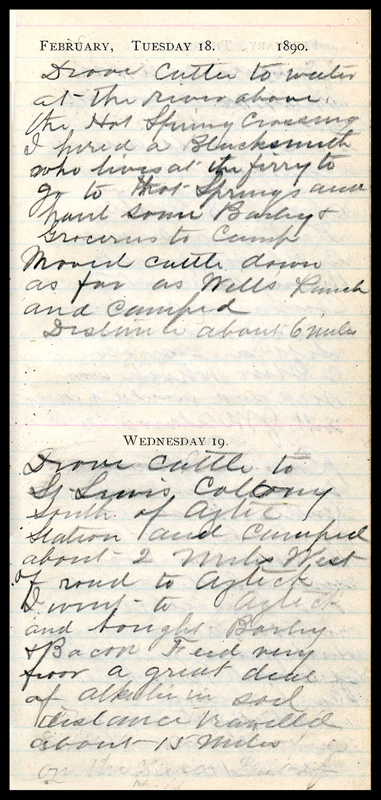 FEBRUARY, TUESDAY 18. 1890.
Drove Cattle to water
at the river above
the Hot Spring Crossing
I hired a Blacksmith
who lives at the ferry to
go to Hot Springs and
haul some Barley &
Groceries to Camp
Moved cattle down
as far as Wells Ranch
and Camped
Distance about 6 miles
WEDNESDAY 19.
Drove Cattle to
St Lewis Collony
South of Aztec
Station and Camped
about 2 Miles West
of road to Azteck
I went to Azteck
and bought Barley
& Bacon Feed very
poor a great deal
of alkali in soil
distance travelled
about 15 Miles
on the